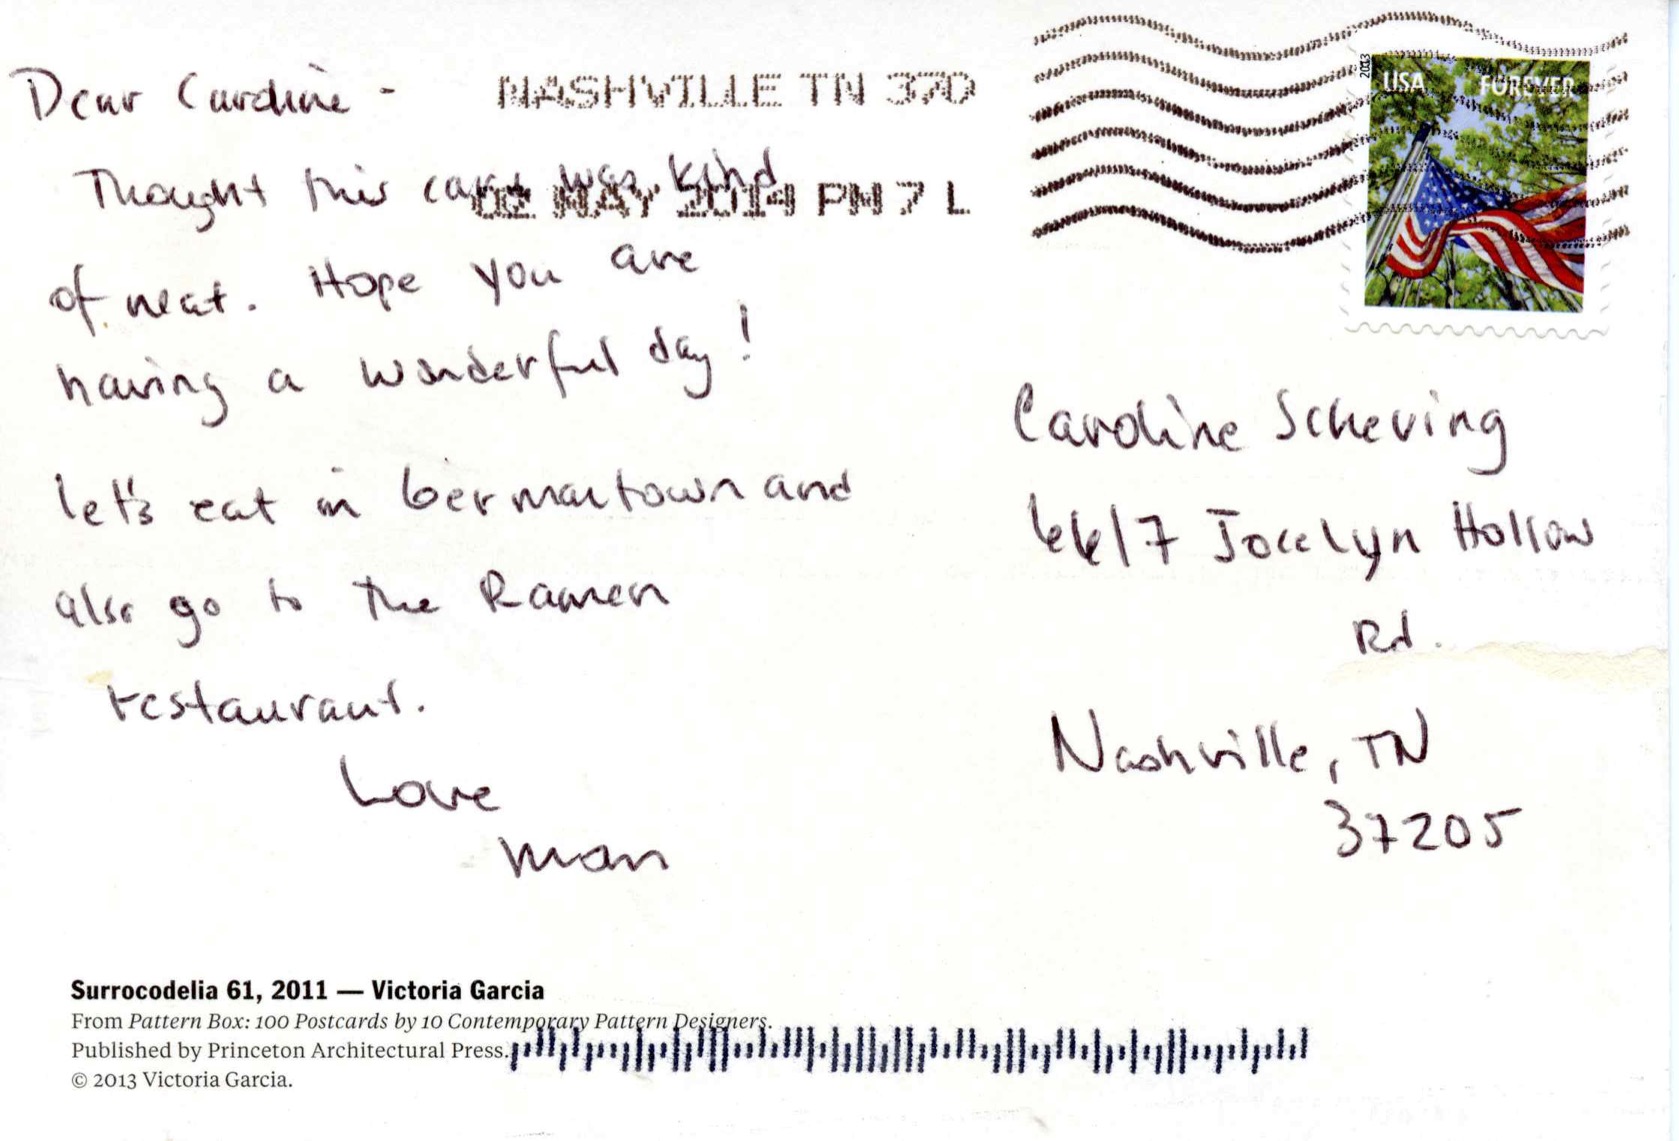 Dear Caroline -
Thought this card was kind
of neat. Hope you are
having a wonderful day!
let's eat in Germantown and
also go to the Ramen
restaurant.
Love
Mom
NASHVILLE TN 370
02 MAY 2014 PM 7 L
2013
USA FOREVER
Caroline Scheving
6617 Jocelyn Hollow
Rd.
Nashville, TN
37205
Surrocodelia 61, 2011 — Victoria Garcia
From Pattern Box: 100 Postcards by 10 Contemporary Pattern Designers.
Published by Princeton Architectural Press.
© 2013 Victoria Garcia.